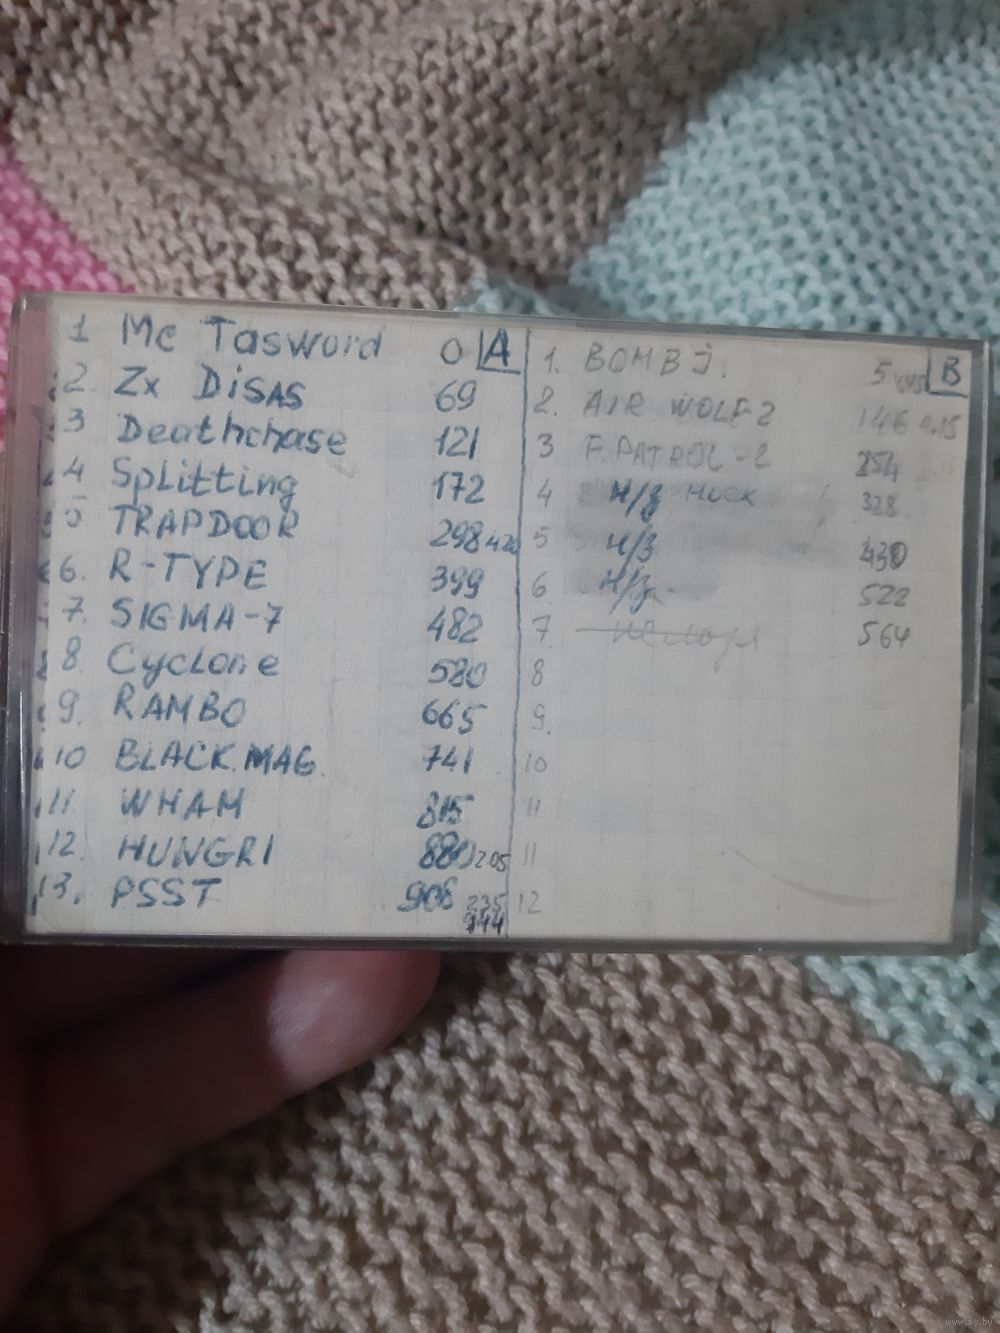 1 Mc Tasword 0 A
2. Zx DiSAS 69
3 Deathchase 121
4 Splitting 172
5 TRAPDOOR 298
6. R-TYPE 399
7. SIGMA-7 482
8. Cyclone 580
9. RAMBO 665
10 BLACK.MAG. 741
11 WHAM 815
12. HUNGRI 880 205
13. PSST 908 235
944
1. BOMBJ. 5 B
2. AIR WOLF 2 146 0.15
3 F.PATROL-2 254
4 Н/З 328
5 Н/З 430
6 Н/З 522
7 564
8
9.
10
11
11
12
www.ay.by